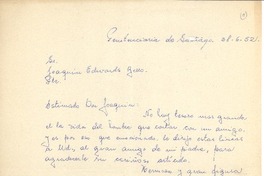 Penitenciaria de Santiago 28.6.52.
Sr.
Joaquín Edwards Bello.
Pte.
Estimado Don Joaquín:
No hay tesoro mas grande
en la vida del hombre que contar con un amigo.
y es por eso que encarcelado, le dirijo estas lineas
a Ud., al gran amigo de mi padre, para
agradecerle su cariñoso artículo.
Hermosa y gran figura